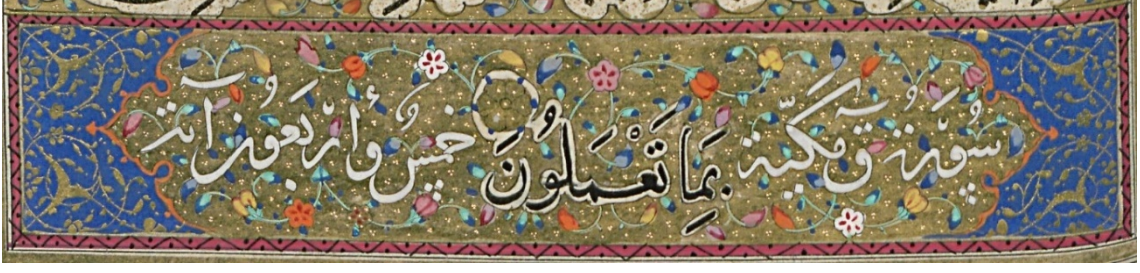 سُورَة قٓ مكيّة بِمَا تَعْمَلُونَ خمسٌ وأربَعُونَ آية